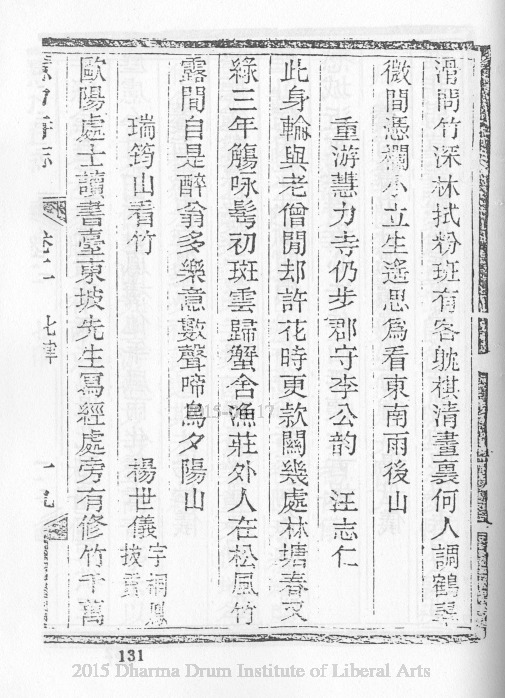 滑問竹深林拭粉斑有客躭棋清晝裏何人調鶴翠
微間憑欄小立生遙思爲看東南雨後山
重游慧力寺仍步郡守李公韵 汪志仁
此身輪與老僧閒却許花時更款關幾處林塘春又
綠三年觴咏髩初斑雲歸蟹舍漁莊外人在松風竹
露間自是醉翁多樂意數聲啼鳥夕陽山
瑞筠山看竹 楊世儀字桐鳳拔貢
歐陽處士讀書臺東坡先生寫經處旁有修竹千萬
慧力寺志 卷二 七律 十九
131
2015 Dharma Drum Institute of Liberal Arts